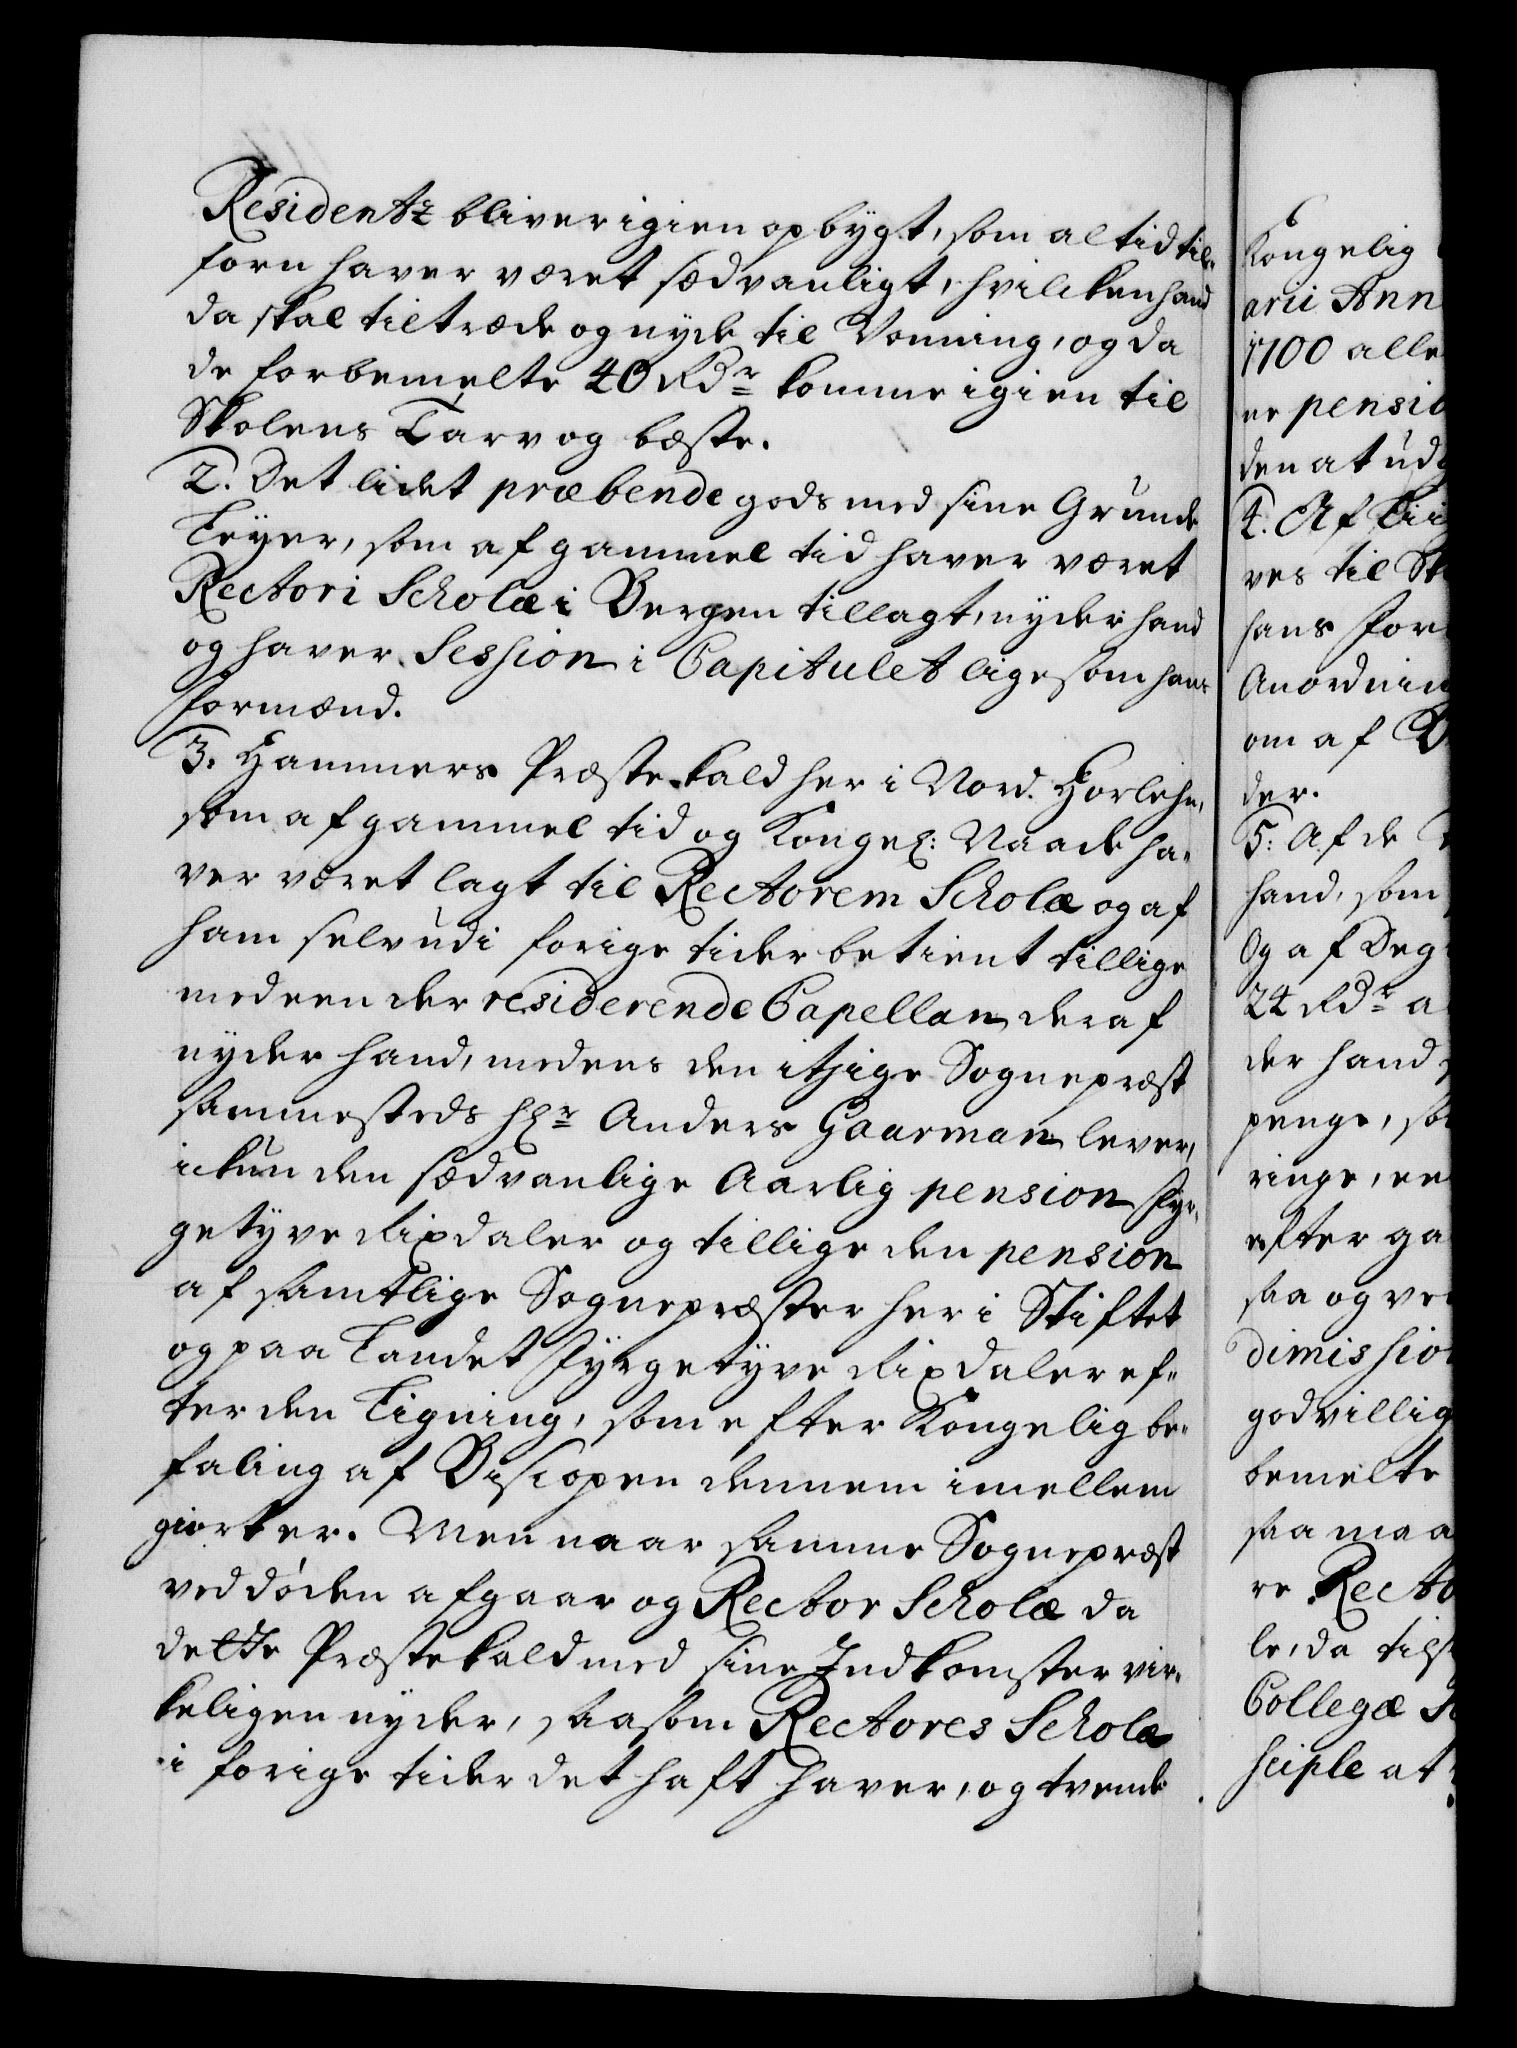 Residentz bliver igien opbygt, som altid til-
forn haver været sædvanligt, hvilcken hand
da skal tiltræde og nyde til Vonning, og da
de forbemelte 40 Rdr komme igien til
Skolens Tarv og bæste.
2. Det lidet præbende gods med sine Grunde
Leyer, som af gammel tid haver været
Rectori Scholæ i Bergen tillagt, nyder hand
og haver Session i Capitulet ligesom hans
formænd.
3. Hammers Præstekald her i Nord Horlehn,
som af gammel tid og Kongel: Naade ha-
ver været lagt til Rectorem Scholæ og af
ham selv udi forige tider betient tillige
med een der residerende Capellan, deraf
nyder hand, medens den itzige Sognepræst
sammesteds Hr Anders Gaarman lever,
ickun den sædvanlige Aarlig pension Fyr-
getyve Rixdaler og tillige den pension
af samtlige Sognepræster her i Stiftet
og paa Landet Fyrgetyve Rixdaler ef-
ter den Ligning, som efter Kongelig be-
faling af Biscopen dennem imellem
giort er. Men naar samme Sognepræst
ved døden afgaar og Rector Scholæ da
dette Præstekald med sine Indkomster vir-
keligen nyder, saasom Rectores Scholæ
i forige tider det haft haver, og tvende
Kongelig
arii Ann
1700 alle
ne pensio
den at udg
4. Af Tii
ves til Sk
hans For
Anordnin
om af D
der.
5: Af de
hand, som
Og af Deg
24 Rdr a
der hand
penge, so
ringe, en
efter ga
saa og ve
dimission
godvillig
bemelte
saa maa
re Recto
le, da tils
Collegæ S
sciple at